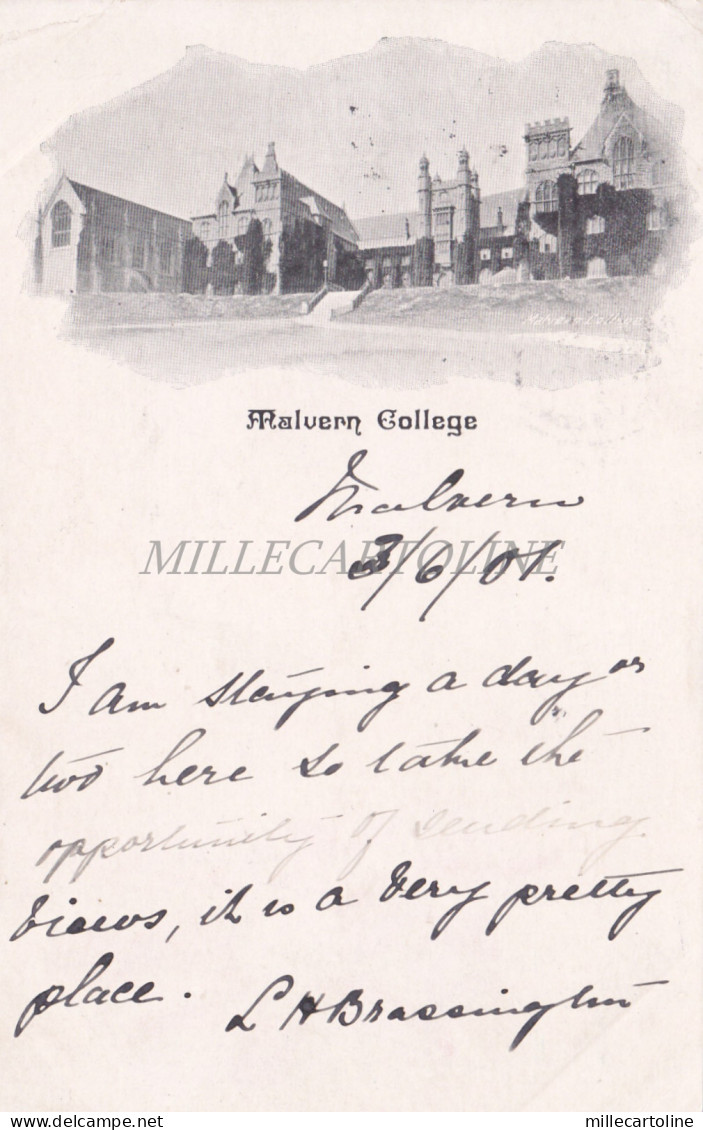 Malvern College
Malvern
3/6/01.
MILLECARTOLINE
I am staying a day or
two here so take the
opportunity of sending
views, it is a very pretty
place.
L H Brassington
delcampe.net
millecartoline